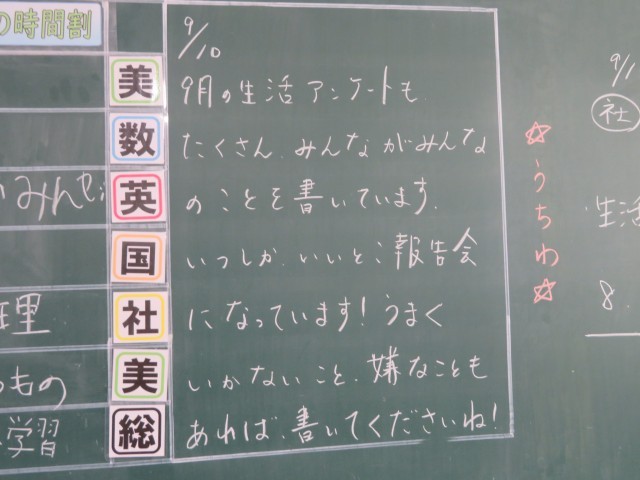 の時間割
美
数
英
国
社
美
総
みんな
理
もの
学習
9/10
9月の生活アンケートも
たくさん、みんながみんな
のことを書いています。
いつしか、いいとこ報告会
になっています！うまく
いかないこと、嫌なことも
あれば、書いてくださいね！
☆うちわ☆
9/1
社
・生活
8.